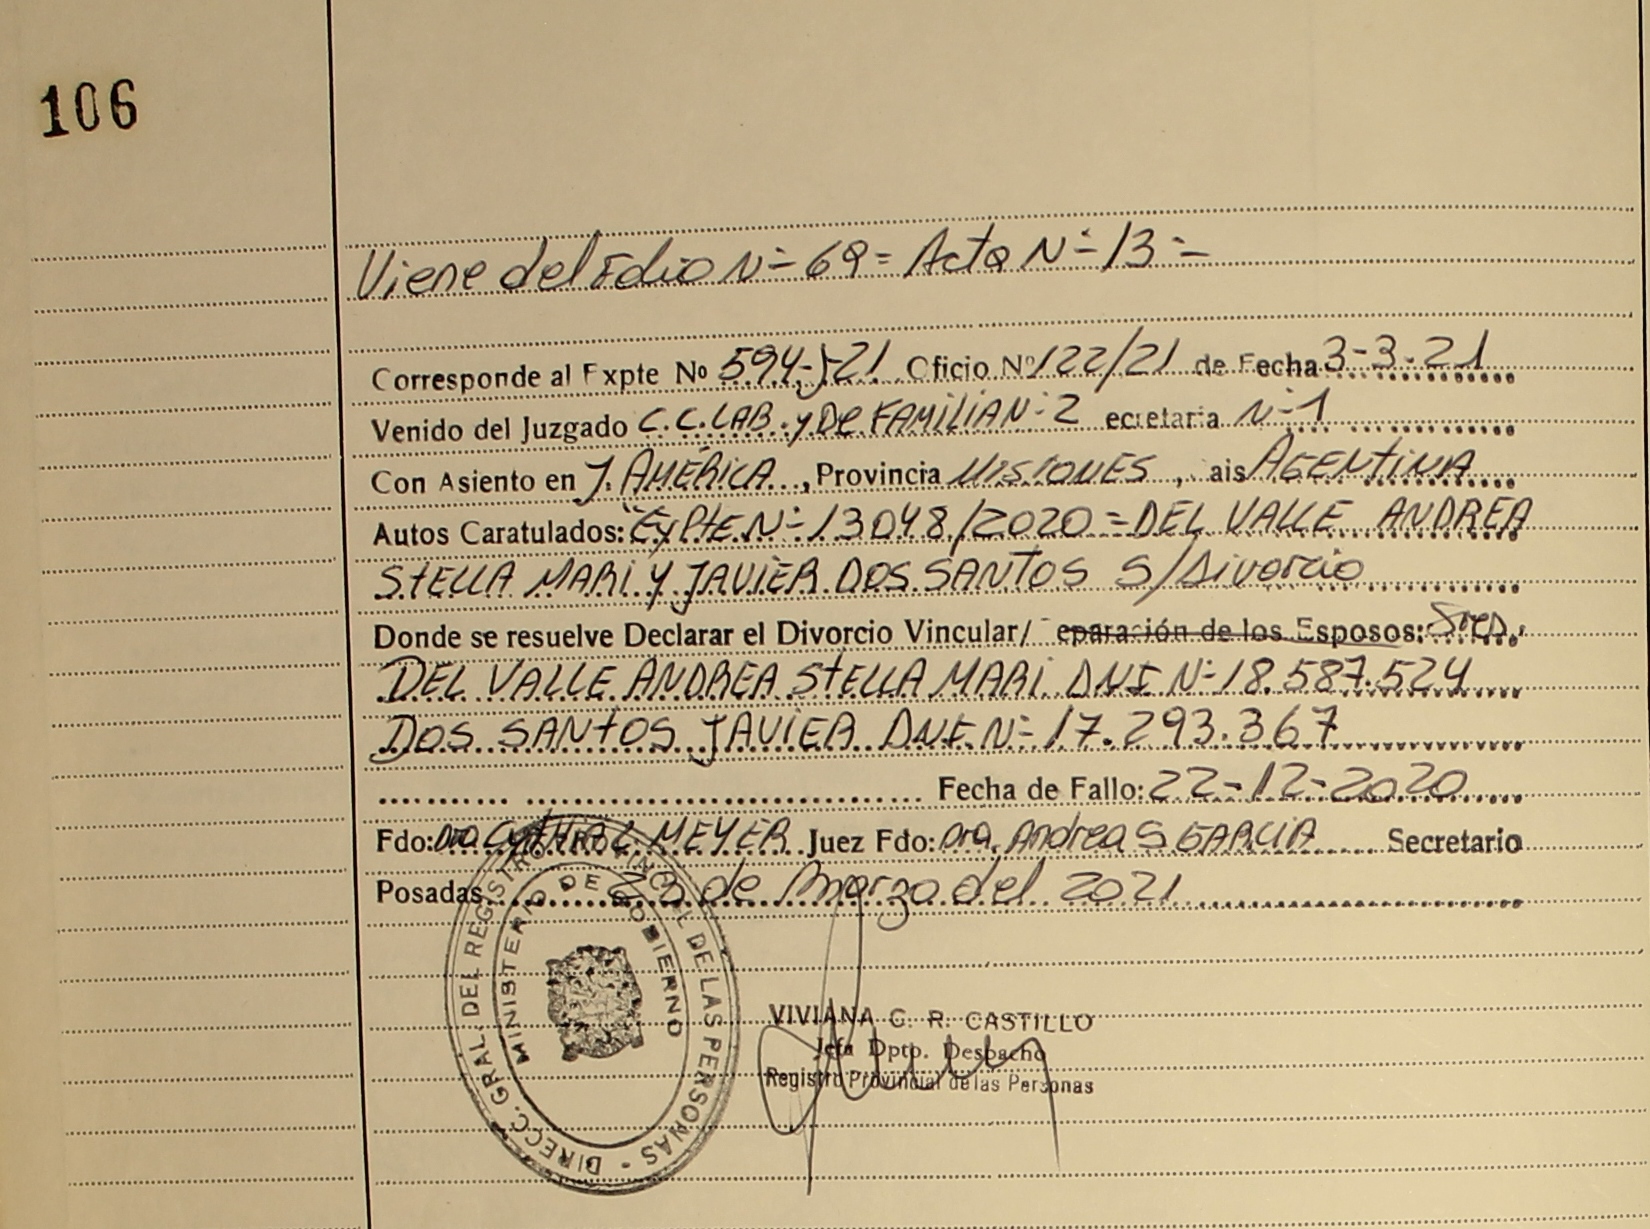 106
Viene del Folio Nº 69 = Acta Nº 13 =
Corresponde al Expte Nº 594-J-21 Oficio Nº 122/21 de Fecha 3-3-21
Venido del Juzgado C.C. LAB. y De FAMiLiA Nº 2 ecretaria Nº 1
Con Asiento en J. AMÉRiCA, Provincia MisIONES, ais AGENTiNA
Autos Caratulados: "ExPte Nº 13048/2020 = DEL VALLE ANDREA
StELLA MARi Y JAViER DOS SANTOS S/Divorcio
Donde se resuelve Declarar el Divorcio Vincular/ eparación de los Esposos: Sres.
DEL VALLE ANDREA StELLA MARi DNI Nº 18.587.524
DOS SANtOS JAViER DNI Nº 17.293.367
Fecha de Fallo: 22-12-2020
Fdo: Dra CyNtHiA C. MEYER Juez Fdo: Dra. Andrea S. GARCiA Secretario
Posadas 23 de Marzo del 2021
DIRECC. GRAL. DEL REGISTRO PROVINCIAL DE LAS PERSONAS -
MINISTERIO DE GOBIERNO
VIVIANA G. R. CASTILLO
Jefa Dpto. Despacho
Registro Provincial de las Personas